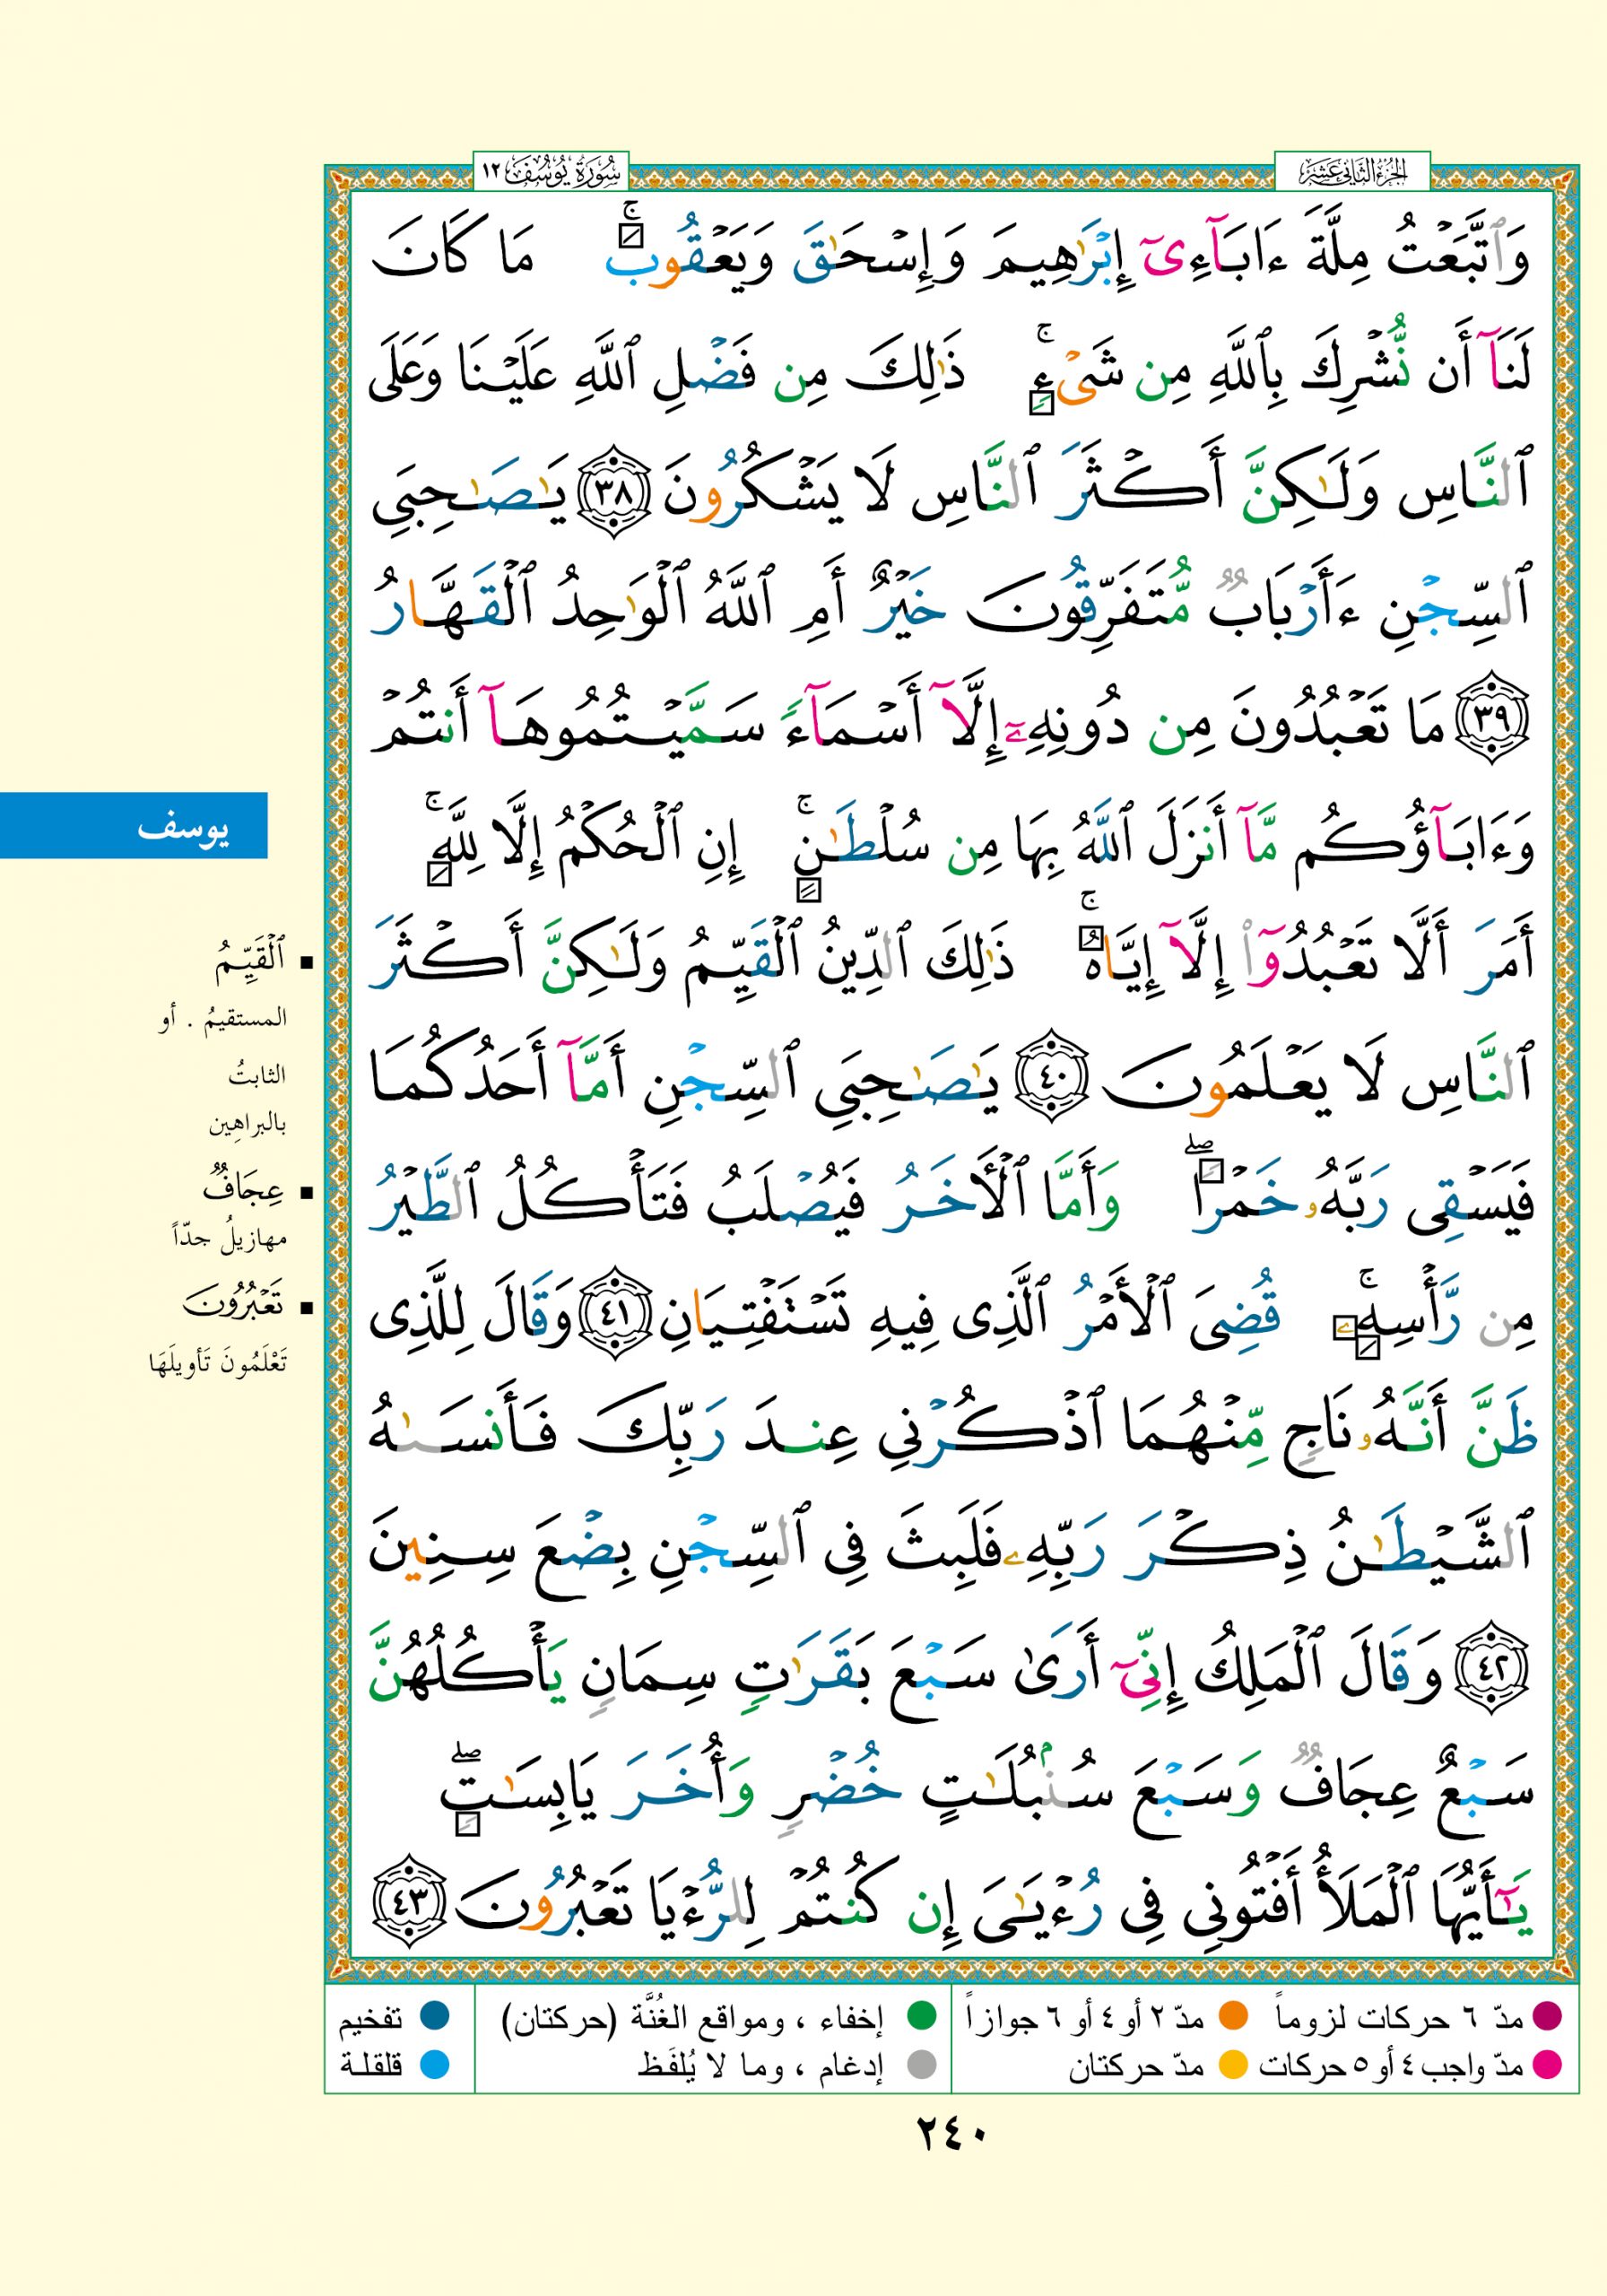 الجزء الثاني عشر
سورة يوسف ١٢
وَٱتَّبَعۡتُ مِلَّةَ ءَابَآءِىٓ إِبۡرَٰهِيمَ وَإِسۡحَٰقَ وَيَعۡقُوبَۚ مَا كَانَ
لَنَآ أَن نُّشۡرِكَ بِٱللَّهِ مِن شَىۡءٖۚ ذَٰلِكَ مِن فَضۡلِ ٱللَّهِ عَلَيۡنَا وَعَلَى
ٱلنَّاسِ وَلَٰكِنَّ أَكۡثَرَ ٱلنَّاسِ لَا يَشۡكُرُونَ ٣٨ يَٰصَٰحِبَىِ
ٱلسِّجۡنِ ءَأَرۡبَابٞ مُّتَفَرِّقُونَ خَيۡرٌ أَمِ ٱللَّهُ ٱلۡوَٰحِدُ ٱلۡقَهَّارُ
٣٩ مَا تَعۡبُدُونَ مِن دُونِهِۦٓ إِلَّآ أَسۡمَآءٗ سَمَّيۡتُمُوهَآ أَنتُمۡ
وَءَابَآؤُكُم مَّآ أَنزَلَ ٱللَّهُ بِهَا مِن سُلۡطَٰنٍۚ إِنِ ٱلۡحُكۡمُ إِلَّا لِلَّهِۚ
أَمَرَ أَلَّا تَعۡبُدُوٓاْ إِلَّآ إِيَّاهُۚ ذَٰلِكَ ٱلدِّينُ ٱلۡقَيِّمُ وَلَٰكِنَّ أَكۡثَرَ
ٱلنَّاسِ لَا يَعۡلَمُونَ ٤٠ يَٰصَٰحِبَىِ ٱلسِّجۡنِ أَمَّآ أَحَدُكُمَا
فَيَسۡقِى رَبَّهُۥ خَمۡرٗاۖ وَأَمَّا ٱلۡأَخَرُ فَيُصۡلَبُ فَتَأۡكُلُ ٱلطَّيۡرُ
مِن رَّأۡسِهِۦۚ قُضِىَ ٱلۡأَمۡرُ ٱلَّذِى فِيهِ تَسۡتَفۡتِيَانِ ٤١ وَقَالَ لِلَّذِى
ظَنَّ أَنَّهُۥ نَاجٖ مِّنۡهُمَا ٱذۡكُرۡنِى عِندَ رَبِّكَ فَأَنسَىٰهُ
ٱلشَّيۡطَٰنُ ذِكۡرَ رَبِّهِۦ فَلَبِثَ فِى ٱلسِّجۡنِ بِضۡعَ سِنِينَ
٤٢ وَقَالَ ٱلۡمَلِكُ إِنِّىٓ أَرَىٰ سَبۡعَ بَقَرَٰتٖ سِمَانٖ يَأۡكُلُهُنَّ
سَبۡعٌ عِجَافٞ وَسَبۡعَ سُنۢبُلَٰتٍ خُضۡرٖ وَأُخَرَ يَابِسَٰتٖۖ
يَٰٓأَيُّهَا ٱلۡمَلَأُ أَفۡتُونِى فِى رُءۡيَٰىَ إِن كُنتُمۡ لِلرُّءۡيَا تَعۡبُرُونَ ٤٣
يوسف
▪ ٱلۡقَيِّمُ
المستقيمُ . أو
الثابتُ
بالبراهِين
▪ عِجَافٞ
مهازيلُ جدّاً
▪ تَعۡبُرُونَ
تَعْلَمُونَ تَأويلَهَا
مدّ ٦ حركات لزوماً
مدّ ٢ أو ٤ أو ٦ جوازاً
مدّ واجب ٤ أو ٥ حركات
مدّ حركتان
إخفاء ، ومواقع الغُنَّة (حركتان)
إدغام ، وما لا يُلفَظ
تفخيم
قلقلة
٢٤٠